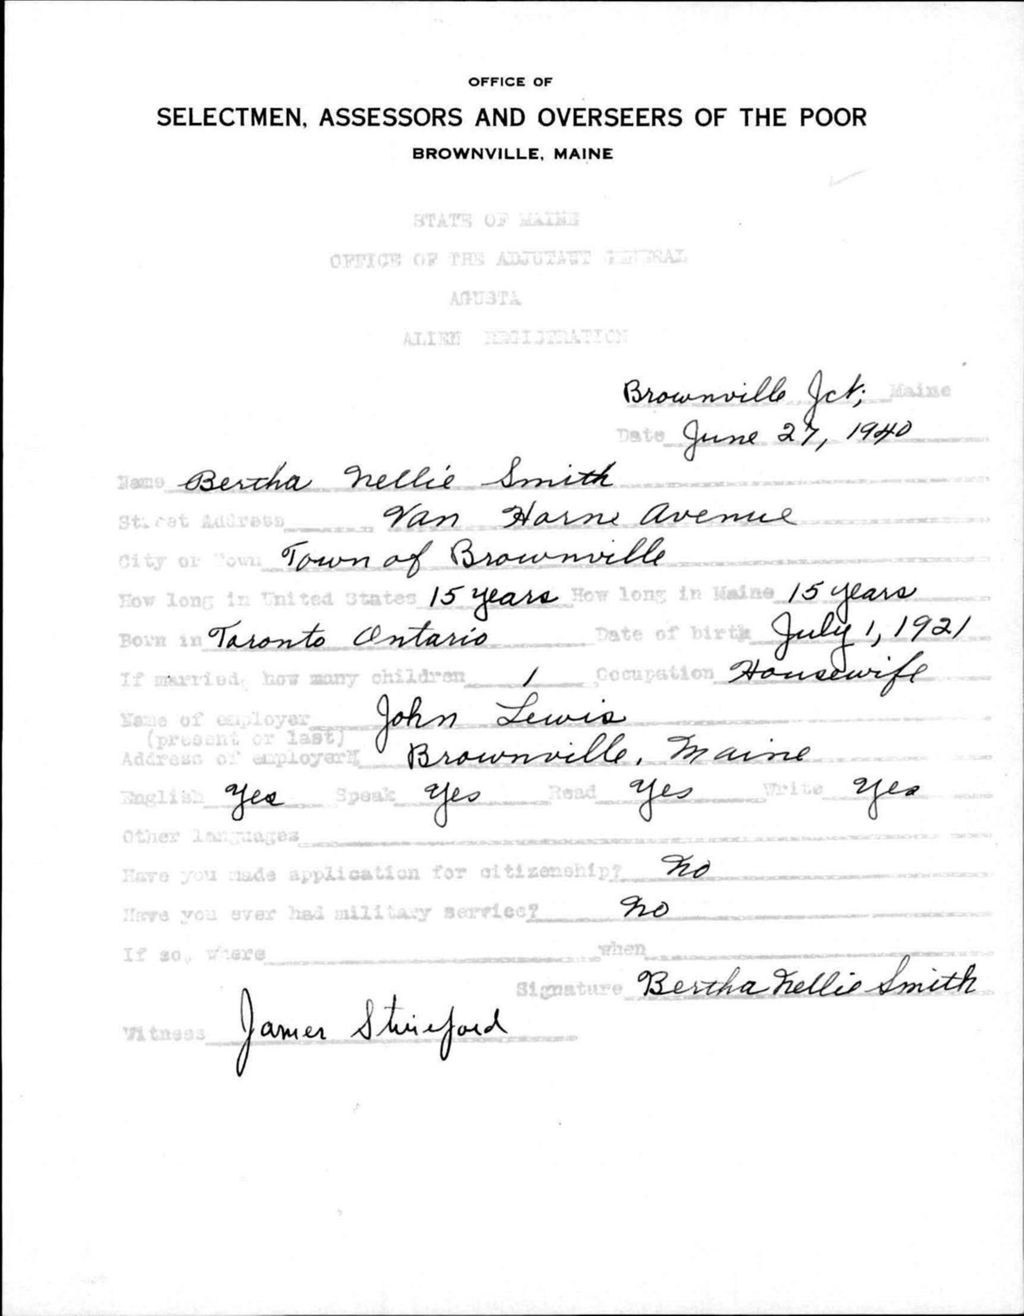 OFFICE OF
SELECTMEN, ASSESSORS AND OVERSEERS OF THE POOR
BROWNVILLE, MAINE
STATE OF MAINE
OFFICE OF THE ADJUTANT GENERAL
AGUSTA
ALIEN REGISTRATION
Brownville Jct; Maine
Date June 27, 1940
Name Bertha Nellie Smith
Street Address Van Horne Avenue
City or Town Town of Brownville
How long in United States 15 years How long in Maine 15 years
Born in Toronto Ontario Date of birth July 1, 1921
If married, how many children 1 Occupation Housewife
Name of employer John Lewis
(present or last)
Address of employer Brownville, Maine
English Yes Speak Yes Read Yes Write Yes
Other languages
Have you made application for citizenship? No
Have you ever had military service? No
If so, where when
Signature Bertha Nellie Smith
Witness James